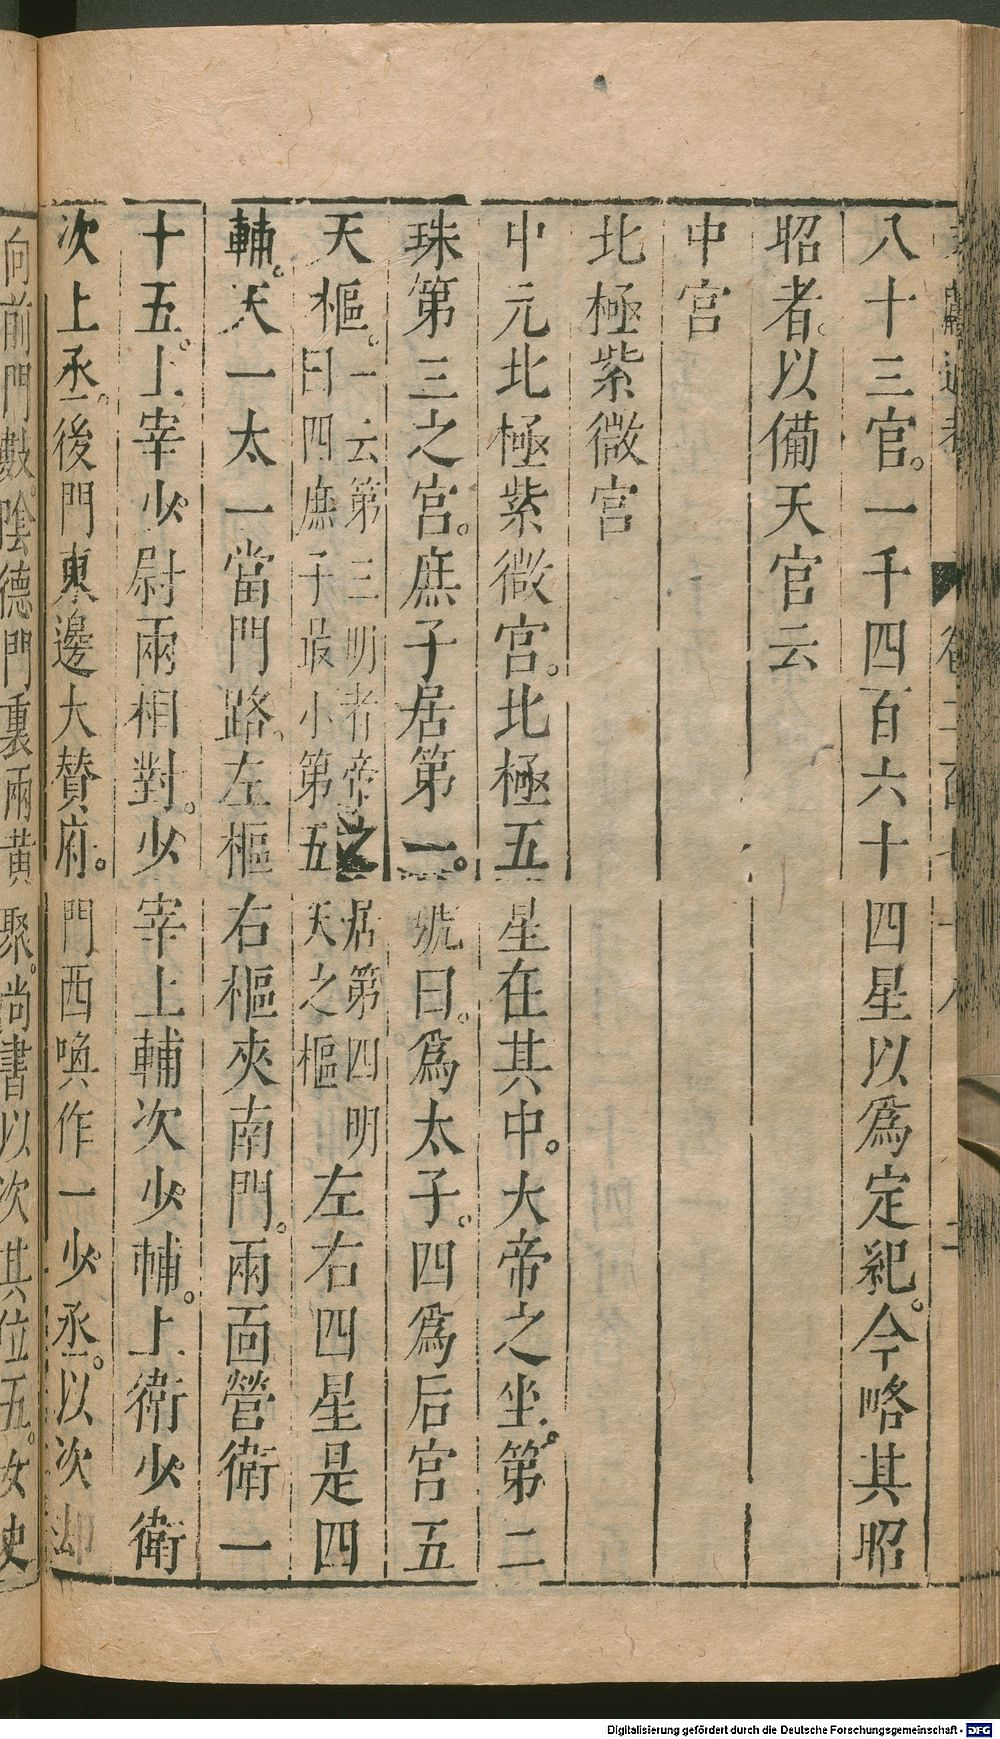 八十三官。一千四百六十四星以爲定紀。今略其昭
昭者。以備天官云
中宫
北極紫微宫
中元北極紫微宮。北極五星在其中。大帝之坐。第二
珠第三之宫。庶子居第一。號曰。爲太子。四爲后宫五
天樞。一云第三明者帝之居第四明
曰四庶子最小第五天之樞
左右四星是四
輔。天一太一當門路。左樞右樞夾南門。兩面營衛一
十五。上宰少尉兩相對。少宰上輔次少輔。上衛少衛
次上丞。後門東邊大賛府。門西喚作一少丞。以次却
向前門數。陰德門裏兩黄聚。尚書以次其位五。女史
Digitalisierung gefördert durch die Deutsche Forschungsgemeinschaft - DFG